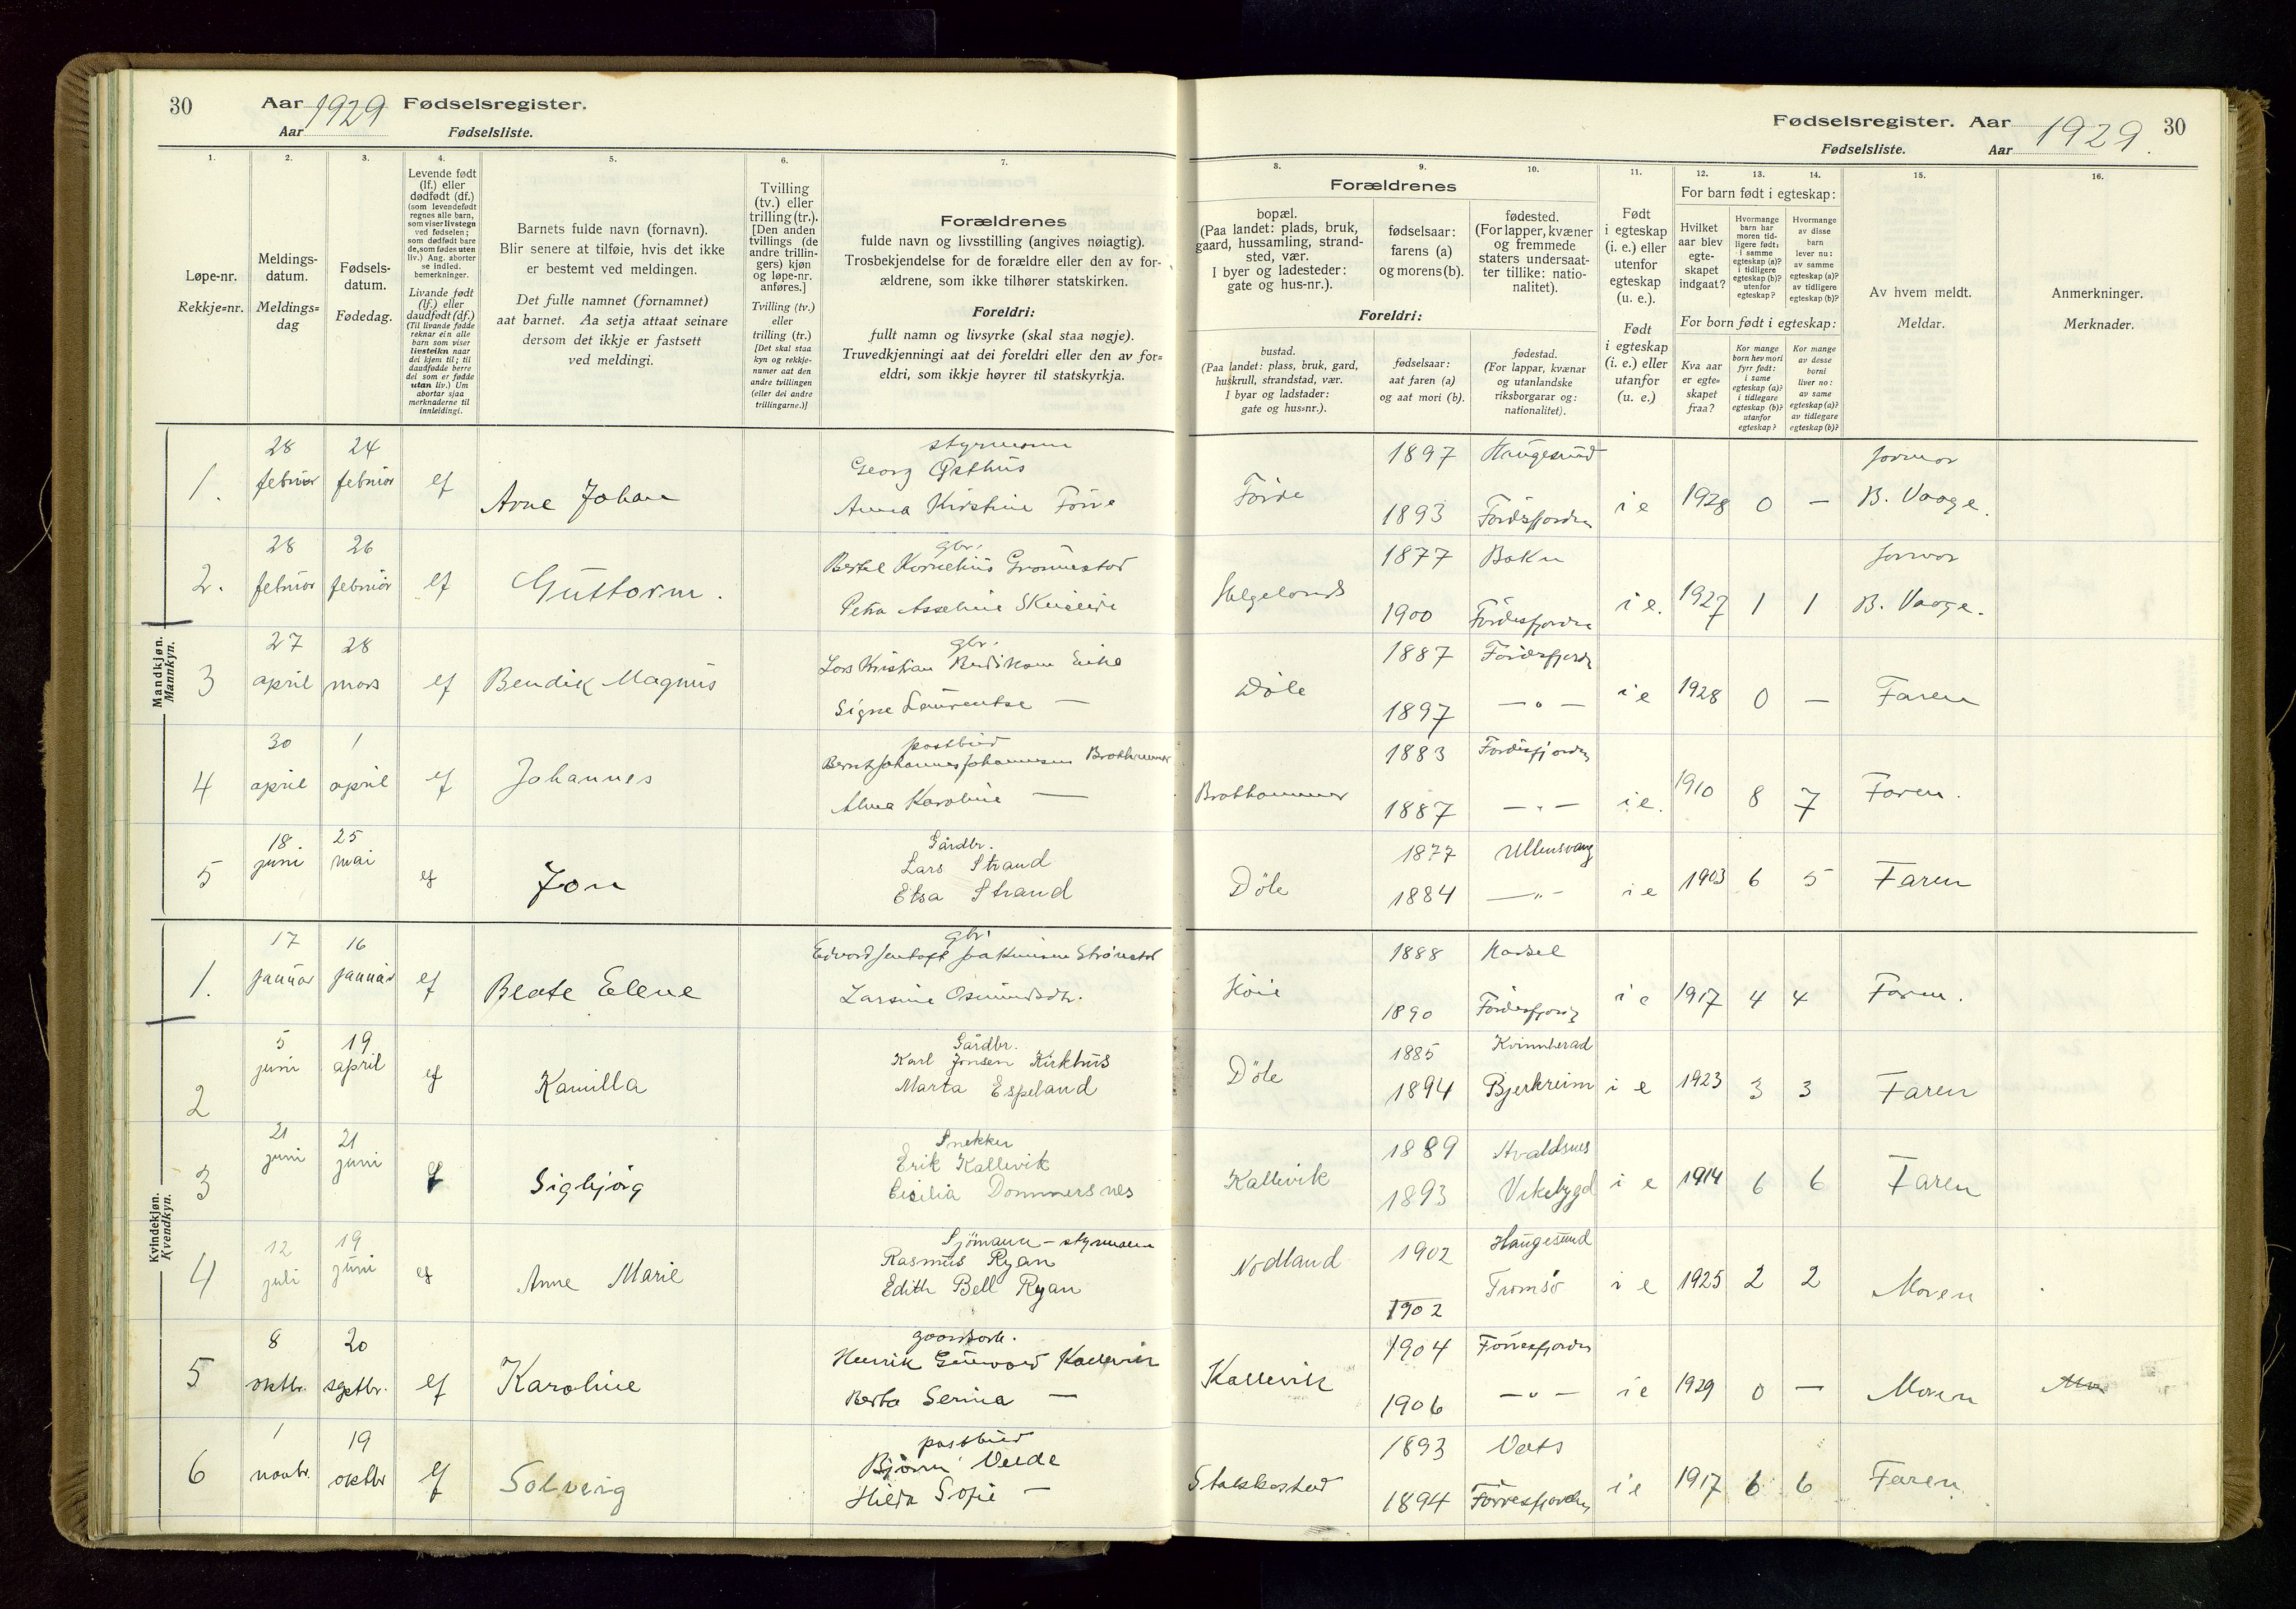 30
Aar 1929 Fødselsregister.
Aar Fødselsliste.
Fødselsregister. Aar 1929. 30
Fødselsliste. Aar
1.
Løpe-nr.
Rekkje=nr.
2.
Meldings-
datum.
Meldings=
dag
3.
Fødsels-
datum.
Fødedag.
4.
Levende født
(lf.) eller
dødfødt (df.)
(som levendefødt
regnes alle barn,
som viser livstegn
ved fødselen;
som dødfødt bare
de, som fødes uten
liv.) Ang. aborter
se indled.
bemerkninger.
Livande født
(lf.) eller
daudfødt (df.)
(Til livande fødde
reknar ein alle
barn som viser
livsteikn naar
dei kjem til; til
daudfødde berre
dei som er fødde
utan liv.) Um
abortar sjaa
merknaderne til
innleidingi.
5.
Barnets fulde navn (fornavn).
Blir senere at tilføie, hvis det ikke
er bestemt ved meldingen.
Det fulle namnet (fornamnet)
aat barnet. Aa setja attaat seinare
dersom det ikkje er fastsett
ved meldingi.
6.
Tvilling
(tv.) eller
trilling (tr.).
[Den anden
tvillings (de
andre trillin-
gers) kjøn
og løpe-nr.
anføres.]
Tvilling (tv.)
eller
trilling (tr.)
[Det skal staa
kyn og rekkje-
numer aat den
andre tvillingen
(eller dei andre
trillingarne.)]
7.
Forældrenes
fulde navn og livsstilling (angives nøiagtig).
Trosbekjendelse for de forældre eller den av for-
ældrene, som ikke tilhører statskirken.
Foreldri:
fullt namn og livsyrke (skal staa nøgje).
Truvedkjenningi aat dei foreldri eller den av for=
eldri, som ikkje høyrer til statskyrkja.
Forældrenes
8.
bopæl.
(Paa landet: plads, bruk,
gaard, hussamling, strand-
sted, vær.
I byer og ladesteder:
gate og hus-nr.).
9.
fødselsaar:
farens (a)
og morens (b).
10.
fødested.
(For lapper, kvæner
og fremmede
staters undersaat-
ter tillike: natio-
nalitet).
Foreldri:
bustad.
(Paa landet: plass, bruk, gard,
huskrull, strandstad, vær.
I byar og ladstader:
gate og hus=nr.).
fødselsaar:
aat faren (a)
og aat mori (b).
fødestad.
(For lappar, kvænar
og utanlandske
riksborgarar og:
nationalitet).
11.
Født
i egteskap
(i. e.) eller
utenfor
egteskap
(u. e.).
Født
i egteskap
(i. e.) eller
utanfor
(u. e.)
12. 13. 14.
For barn født i egteskap:
Hvilket
aar blev
egte-
skapet
indgaat?
Hvormange
barn har
moren tid-
ligere født:
i samme
egteskap (a)?
i tidligere
egteskap (b)?
utenfor
egteskap?
Hvormange
av disse
barn
lever nu:
av samme
egteskap (a)?
av tidligere
egteskap (b)?
For born født i egteskap:
Kva aar
er egte=
skapet
fraa?
Kor mange
born hev mori
fyrr født:
i same
egteskap (a)?
i tidlegare
egteskap (b)?
utanfor
egteskap?
Kor mange
av desse
borni
liver no:
av same
egteskap (a)?
av tidlegare
egteskap (b)?
15.
Av hvem meldt.
Meldar.
16.
Anmerkninger.
Merknader.
Mandkjøn.
Mannkyn.
1. 28 februar 24 februar lf Arne Johan
styrmann
Georg Østhus
Anna Kirstine Førre
Førde 1897 Haugesund
1893 Førdesfjorden
i e 1928 0 — jormor B. Vaage.
2. 28 februar 26 februar lf Guttorm.
gbr.
Bertel Kornelius Grønnestad
Petra Asseline
Helgelands 1877 Bokn
1900 Førdesfjorden
i e. 1927 1 1 jormor B. Vaage.
3 27 april 28 mars lf Bendik Magnus
gbr.
Lars Kristian Bendiksen Eike
Signe Laurentse —
Døle 1887 Førdesfjorden
1897 — " —
i e 1928 0 — Faren
4 30 april 1 april lf Johannes
postbud
Bernt Johannes Johannesen Brathammer
Alma Karoline —
Brathammer 1883 Førdesfjorden
1887 — " —
i e. 1910 8 7 Faren.
5 18. juni 25 mai lf Jon
Gårdbr.
Lars Strand
Elsa Strand
Døle 1877 Ullensvang
1884 — " —
i e 1903 6 5 Faren
Kvindekjøn.
Kvendkyn.
1. 17 januar 16 januar lf Beate Elene
gbr.
Edvard Jentoft Joakimsen Strønstad
Larsine Osmundsdtr.
Høie 1888 Hadsel
1890 Førdesfjord
i e 1917 4 4 Faren.
2 5 juni 19 april lf Kamilla
Gårdbr.
Karl Jonsen Kirkhus
Marta Espeland
Døle 1885 Kvinnherad
1894 Bjerkreim
i e 1923 3 3 Faren
3 21 juni 21 juni lf Sigbjørg
Snekker
Erik Kallevik
Cicilia Dommersnes
Kallevik 1889 Avaldsnes
1893 Vikebygd
i e 1914 6 6 Faren
4 12 juli 19 juni lf Anne Marie
Sjømann - styrmann
Rasmus Ryan
Edith Bell Ryan
Nodland 1902 Haugesund
1902 Tromsø
i e 1925 2 2 Moren
5 8 oktbr. 20 septbr. lf Karoline
Henrik Kallevik
Berta Serina —
Kallevik 1904 Førresfjorden
1906 — " —
i e 1929 0 — Moren
6 1 novbr. 19 oktbr lf Solveig
postbud
Bjørn Velde
Hilda Sofie —
1893 Vats
1894 Førresfjorden
i e 1917 6 6 Faren